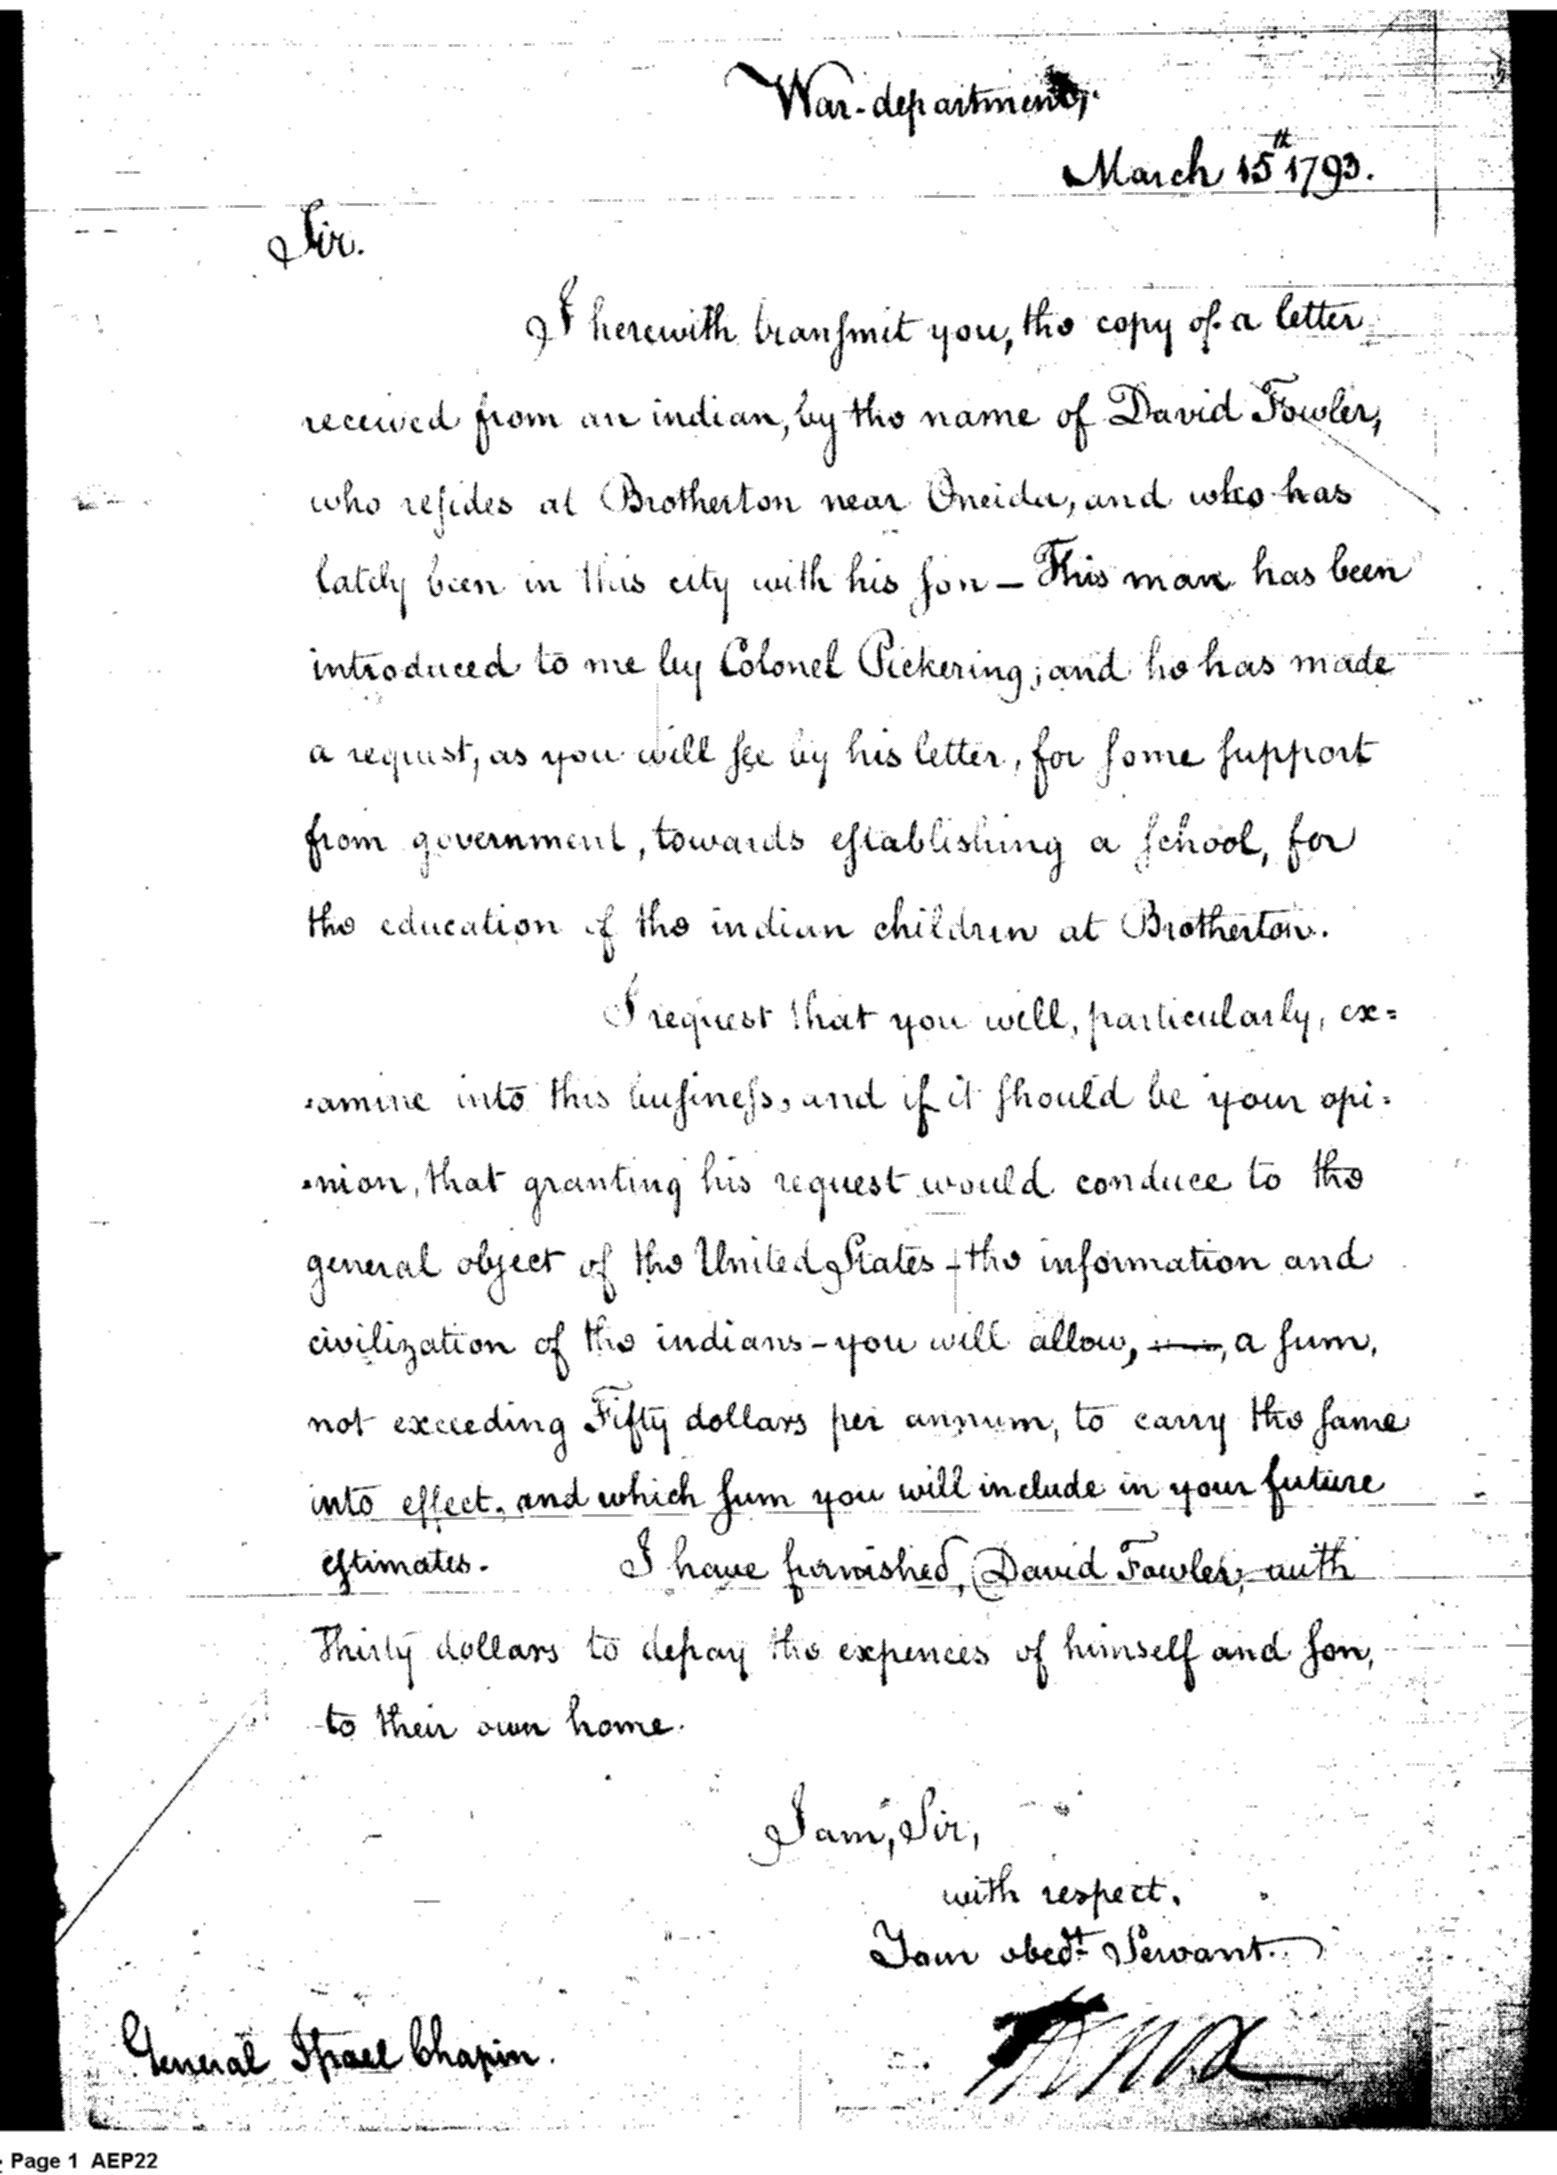 War-department,
March 15th 1793.
Sir.
I herewith transmit you, the copy of a letter
received from an indian, by the name of David Fowler,
who resides at Brotherton near Oneida, and who has
lately been in this city with his son – This man has been
introduced to me by Colonel Pickering; and he has made
a request, as you will see by his letter, for some support
from government, towards establishing a school, for
the education of the indian children at Brotherton.
I request that you will, particularly, ex=
=amine into this business, and if it should be your opi=
=nion, that granting his request would conduce to the
general object of the United States – the information and
civilization of the indians – you will allow, a sum,
not exceeding Fifty dollars per annum, to carry the same
into effect, and which sum you will include in your future
estimates. I have furnished, David Fowler, with
Thirty dollars to defray the expences of himself and son,
to their own home.
I am, Sir,
with respect,
Your obedt Servant.
HKnox
General Israel Chapin.
: Page 1 AEP22